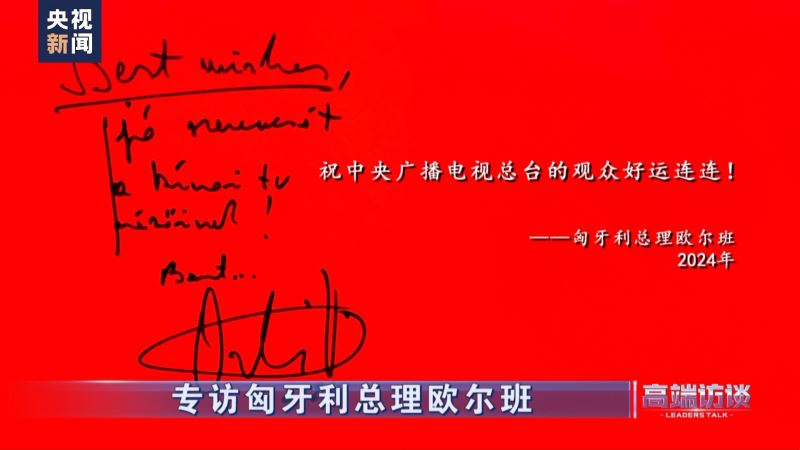 央视
新闻
Best wishes,
jó szerencsét
a kínai tv
nézőinek!
祝中央广播电视总台的观众好运连连！
——匈牙利总理欧尔班
2024年
专访匈牙利总理欧尔班
高端访谈
LEADERS TALK